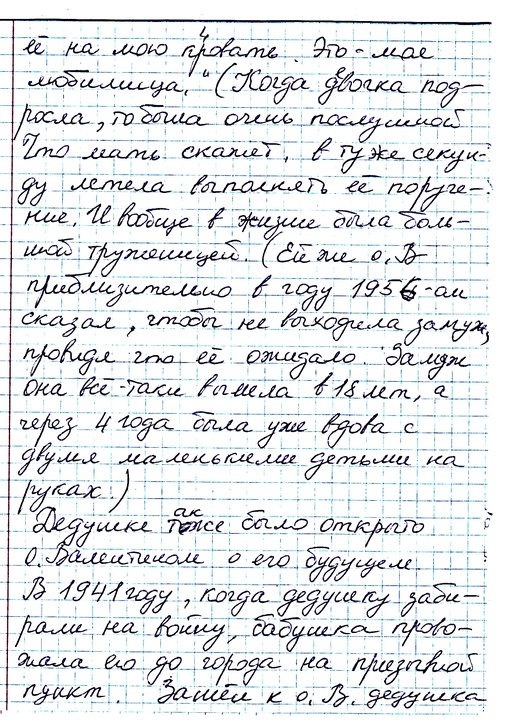 её на мою кровать. Это - мае
любимица." (Когда двочка под-
росла, то была очень послушной
Что мать скажет, в ту же секун-
ду летела выполнять её поруче-
ние. И вообще в жизни была боль-
шой труженицей. (Ей же о. В
приблизительно в году 1956-ом
сказал, чтобы не выходила замуж,
провидя что её ожидало. Замуж
она всё-таки вышла в 18 лет, а
через 4 года была уже вдова с
двумя маленькими детьми на
руках.)
Дедушке также было открыто
о. Валентином о его будущем.
В 1941 году, когда дедушку заби-
рали на войну, бабушка прово-
жала его до города на призывной
пункт. Зашёл к о. В. дедушка